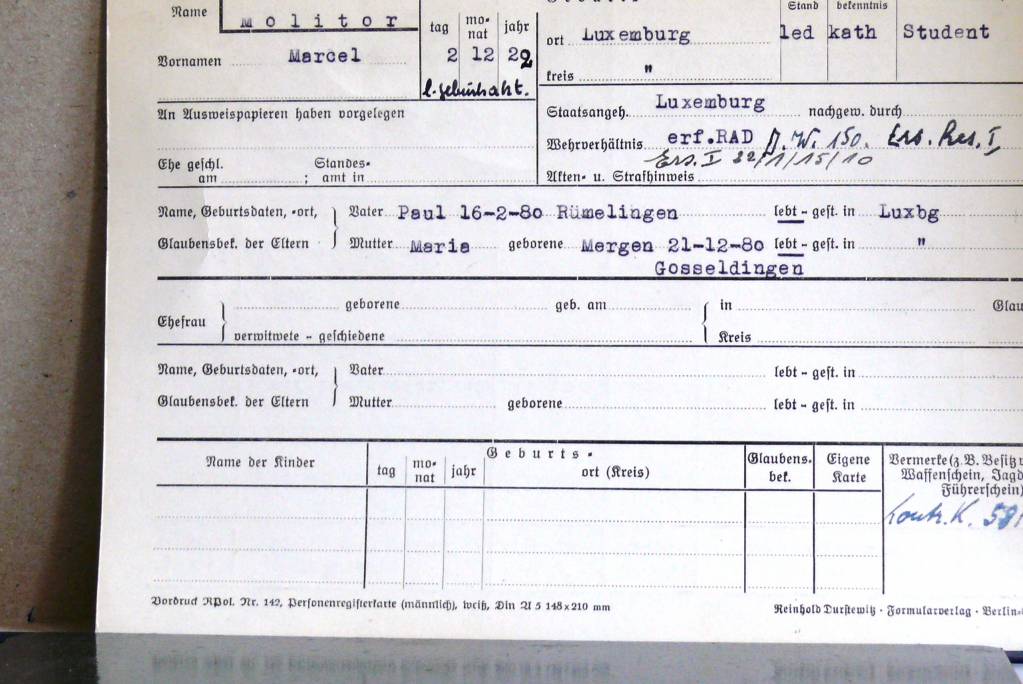 Name Molitor tag mo- nat jahr ort Luxemburg Stand bekenntnis
led kath Student
Vornamen Marcel 2 12 22 kreis "
l. Geburtsakt.
Staatsangeh. Luxemburg nachgew. durch
An Ausweispapieren haben vorgelegen
Wehrverhältnis erf.RAD D.W. 150. Ers. Res. I
Ers. I 22/1/15/10
Ehe geschl. am ; Standes- amt in
Akten- u. Strafhinweis
Name, Geburtsdaten, -ort, Vater Paul 16-2-80 Rümelingen lebt - gest. in Luxbg
Glaubensbek. der Eltern Mutter Maria geborene Mergen 21-12-80 lebt - gest. in "
Gosseldingen
geborene geb. am in Glau
Ehefrau
verwitwete - geschiedene Kreis
Name, Geburtsdaten, -ort, Vater lebt - gest. in
Glaubensbek. der Eltern Mutter geborene lebt - gest. in
Name der Kinder Geburts- Glaubens- bek. Eigene Karte Vermerke (z. B. Besitz
tag mo- nat jahr ort (Kreis) Waffenschein, Jagd
Führerschein)
Kontr. K. 591
Vordruck RPol. Nr. 142, Personenregisterkarte (männlich), weiß, Din A 5 148x210 mm
Reinhold Durstewitz · Formularverlag · Berlin-